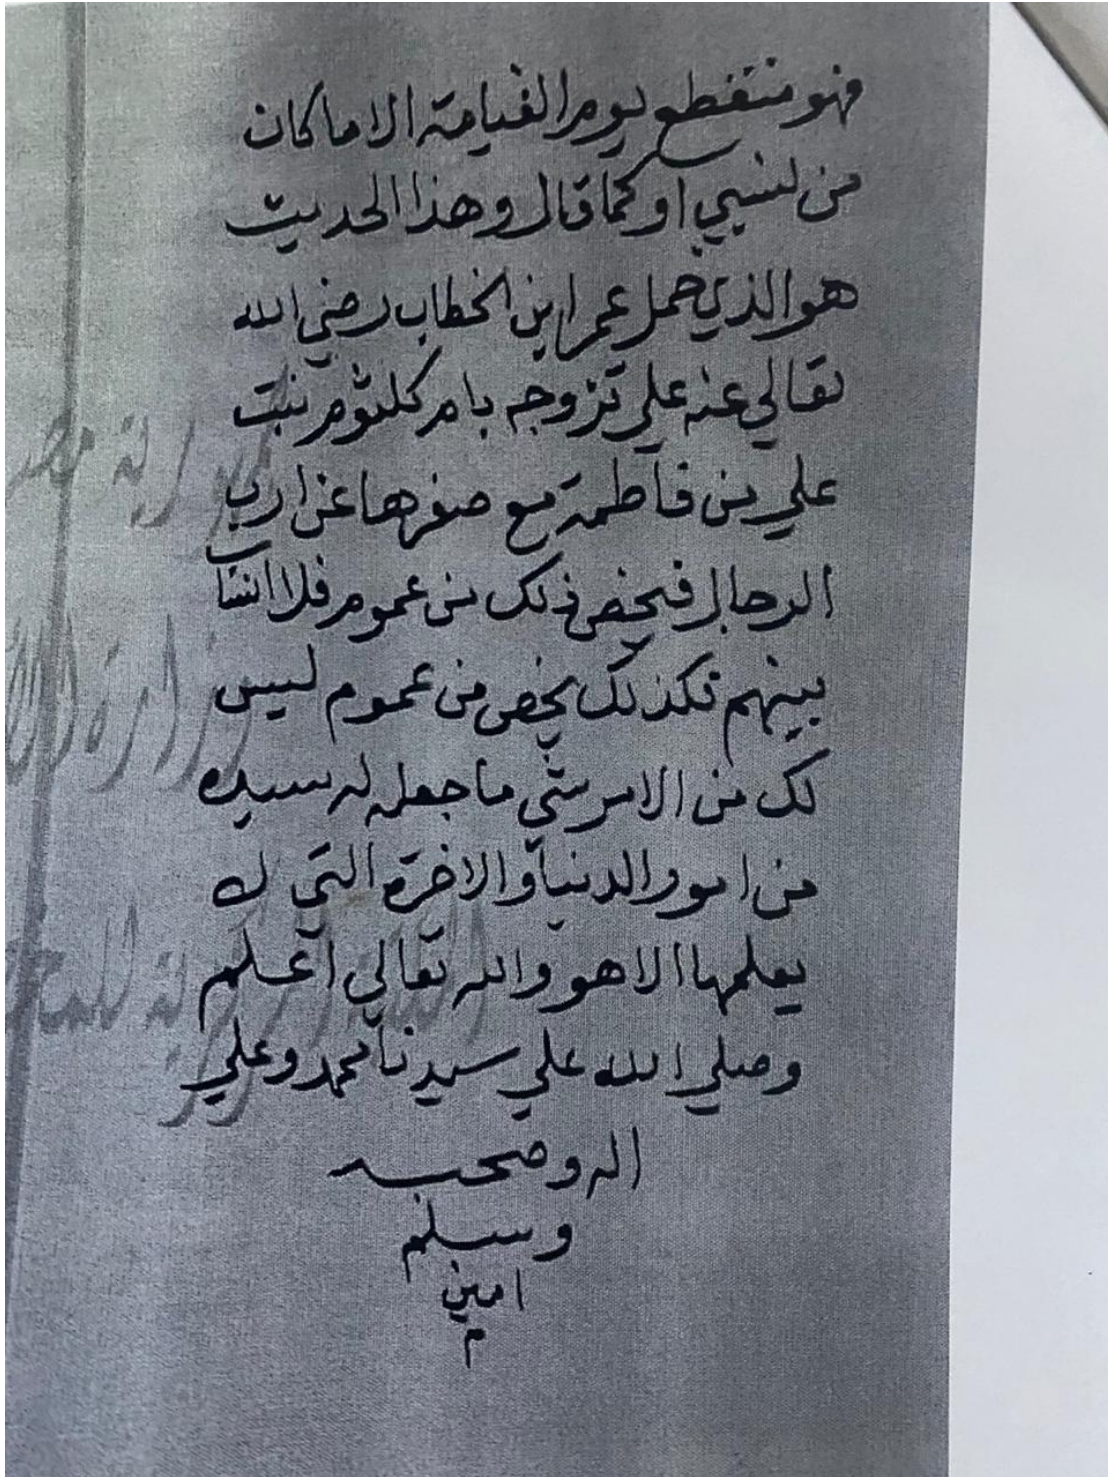 فهو منقطع يوم القيامة الا ما كان
من نسبي او كما قال وهذا الحديث
هو الذي حمل عمر ابن الخطاب رضي الله
تعالي عنه علي تزوجه بام كلثوم بنت
علي من فاطمة مع صغرها عن ارب
الرجال فيخص ذلك من عموم فلا انسا
بينهم فكذلك يخص من عموم ليس
لك من الامر شي ما جعله له سيده
من امور الدنيا والاخرة التي لا
يعلمها الا هو والله تعالي اعلم
وصلي الله علي سيدنا محمد وعلي
اله وصحبه
وسلم
امين
م